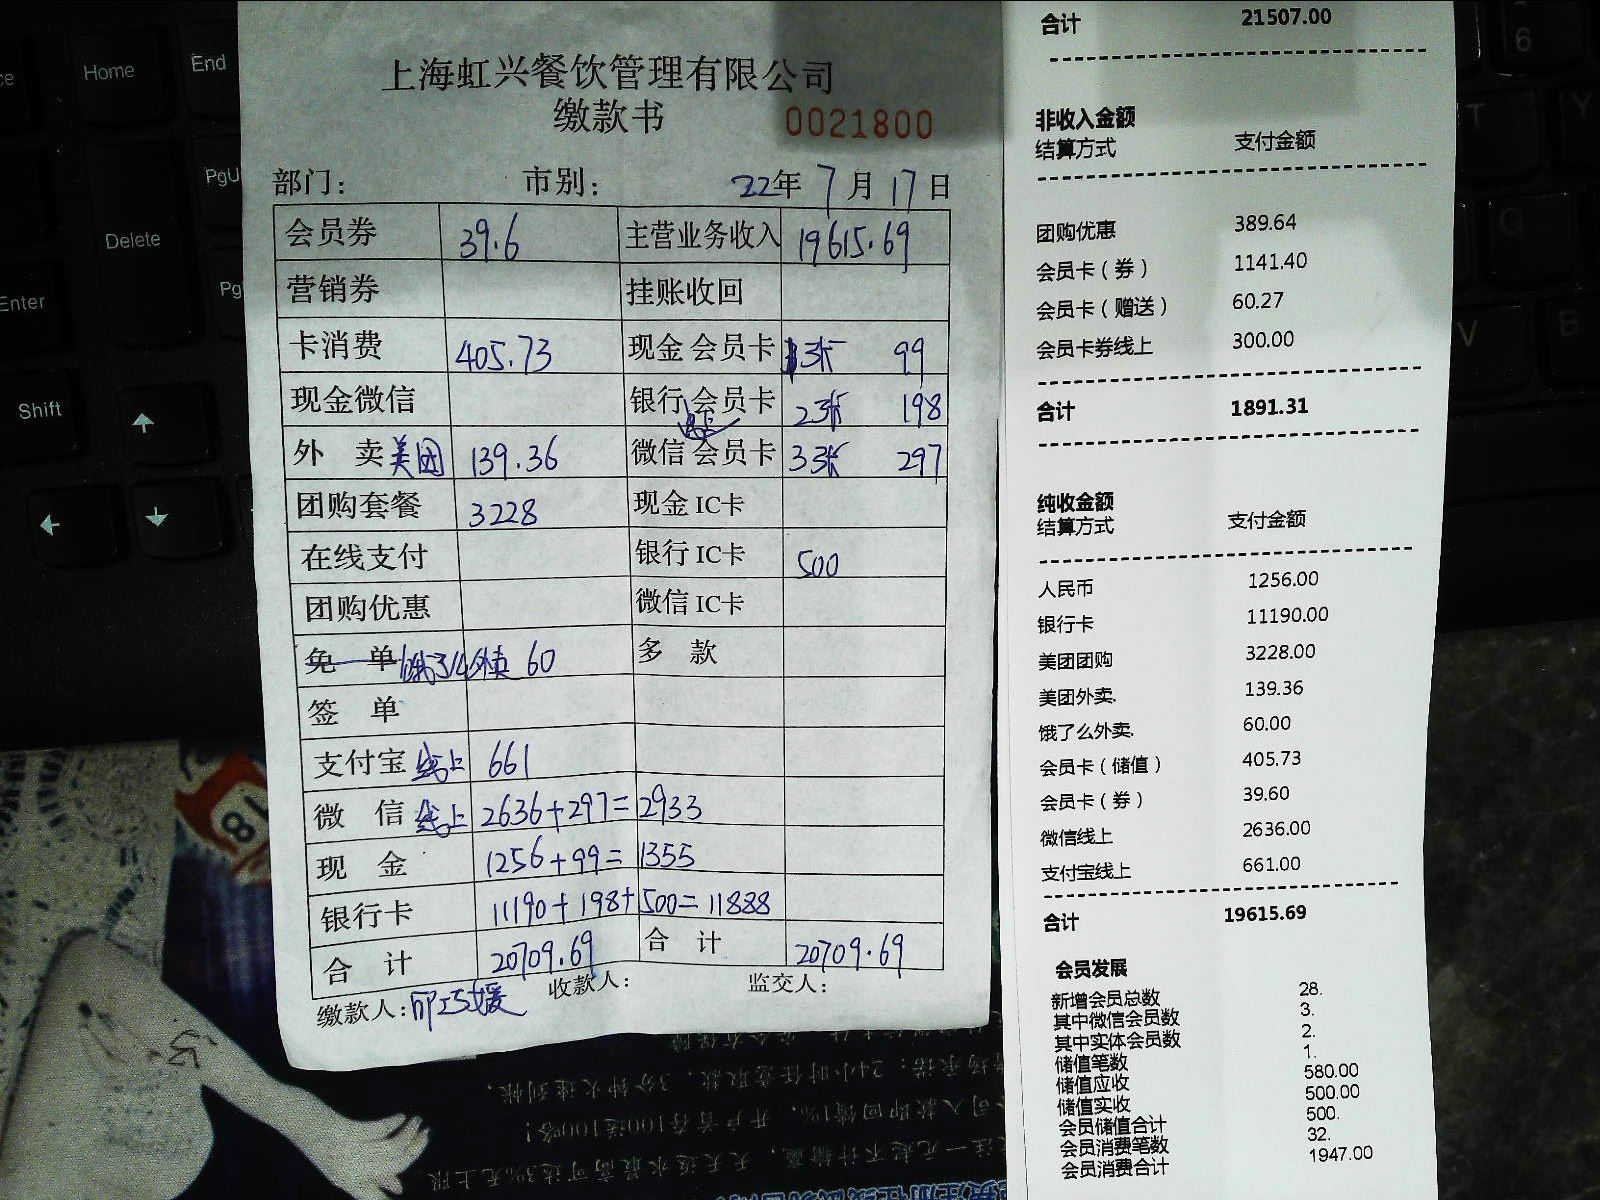 上海虹兴餐饮管理有限公司
缴款书
0021800
部门： 市别： 22年 7月 17日
会员券 39.6 主营业务收入 19615.69
营销券 挂账收回
卡消费 405.73 现金 会员卡 3张 99
现金微信 银行 会员卡 2张 198
外 卖 美团 139.36 微信 会员卡 3张 297
团购套餐 3228 现金 IC卡
在线支付 银行 IC卡 500
团购优惠 微信 IC卡
免 单 外卖 60 多 款
签 单
支付宝 线上 661
微 信 线上 2636+297=2933
现 金 1256+99=1355
银行卡 11190+198+500=11888
合 计 20709.69 合 计 20709.69
缴款人： 收款人： 监交人：
合计 21507.00
非收入金额
结算方式 支付金额
团购优惠 389.64
会员卡（券） 1141.40
会员卡（赠送） 60.27
会员卡券线上 300.00
合计 1891.31
纯收金额
结算方式 支付金额
人民币 1256.00
银行卡 11190.00
美团团购 3228.00
美团外卖. 139.36
饿了么外卖. 60.00
会员卡（储值） 405.73
会员卡（券） 39.60
微信线上 2636.00
支付宝线上 661.00
合计 19615.69
会员发展
新增会员总数 28.
其中微信会员数 3.
其中实体会员数 2.
储值笔数 1.
储值应收 580.00
储值实收 500.00
会员储值合计 500.
会员消费笔数 32.
会员消费合计 1947.00
Home
End
PgU
Delete
Enter
Pg
Shift
6
T
Y
G
V
B
18